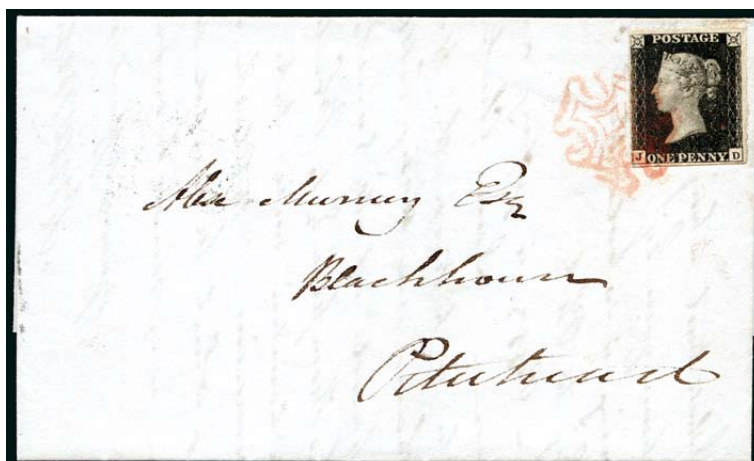 POSTAGE
J ONE PENNY D
Alex Murray Esq
Blackhouse
Peterhead